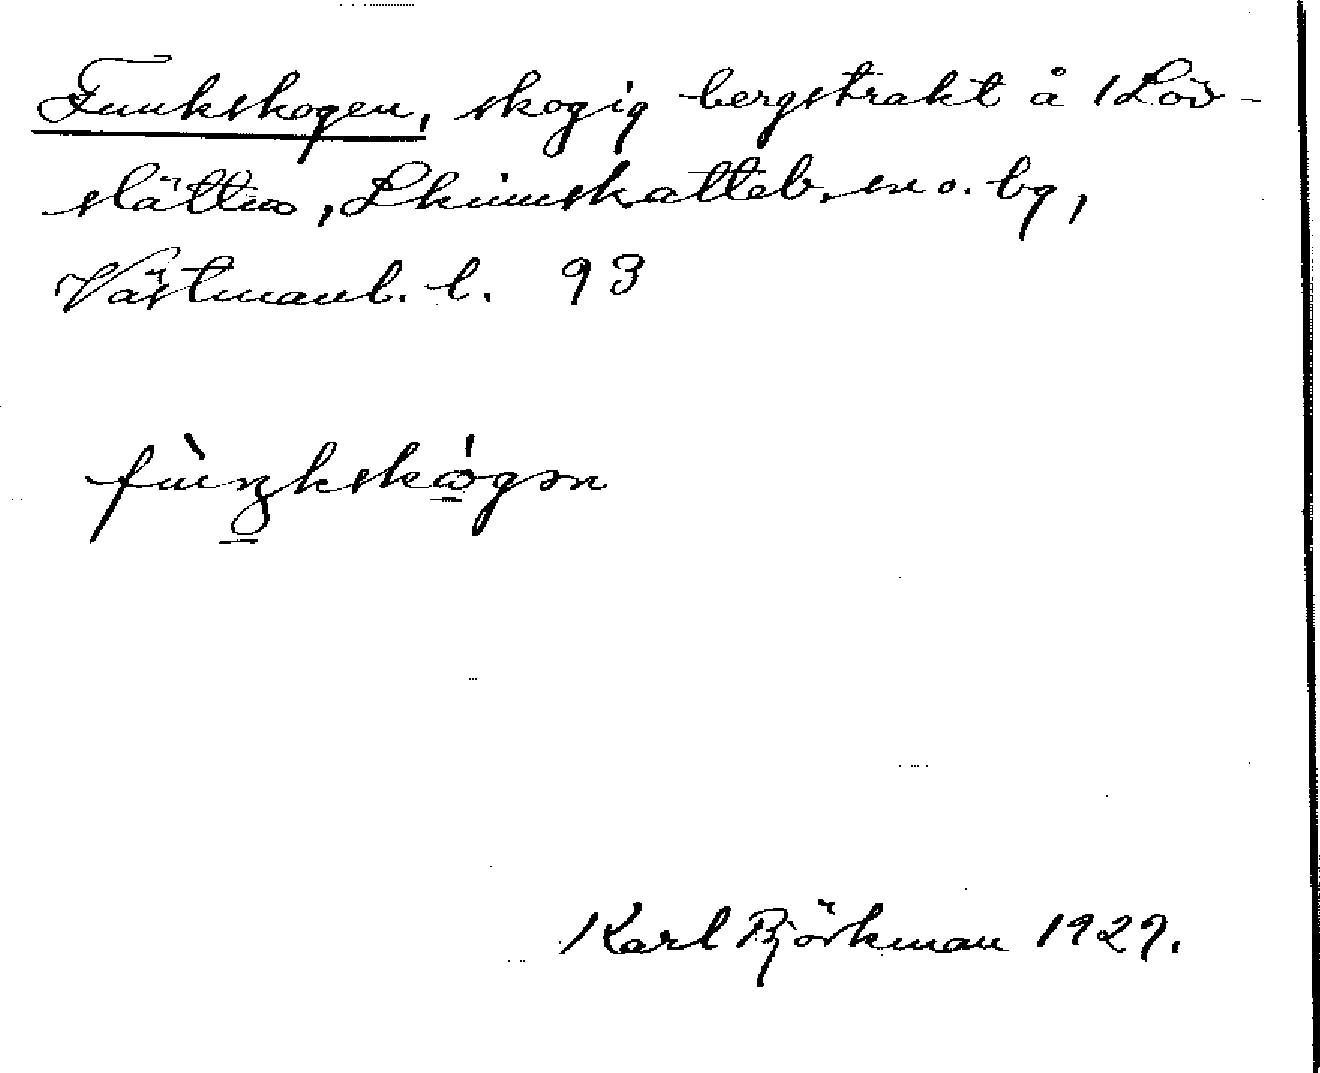 Funkskogen, skogig bergstrakt å 1 Löv-
slätten, Skinnskatteb. sn o. bg,
Västmanl. l. 93
fùŋkskógən
Karl Björkman 1927.